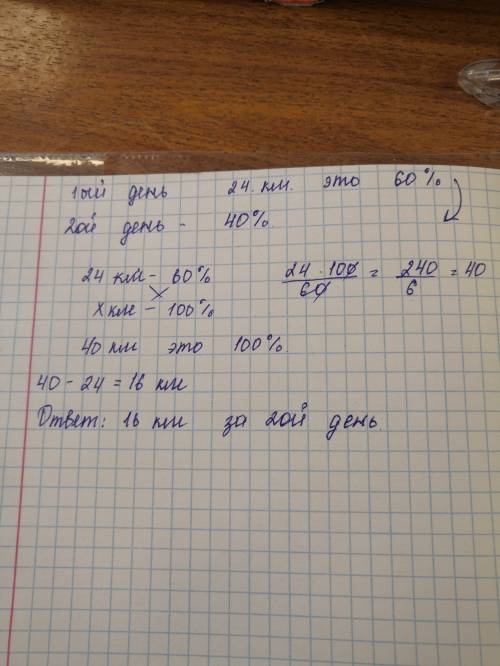 1ый день 24 км. это 60%
2ой день - 40%
24 км - 60% 24 · 100 / 60 = 240 / 6 = 40
x км - 100%
40 км это 100%.
40 - 24 = 16 км
Ответ: 16 км за 2ой день.